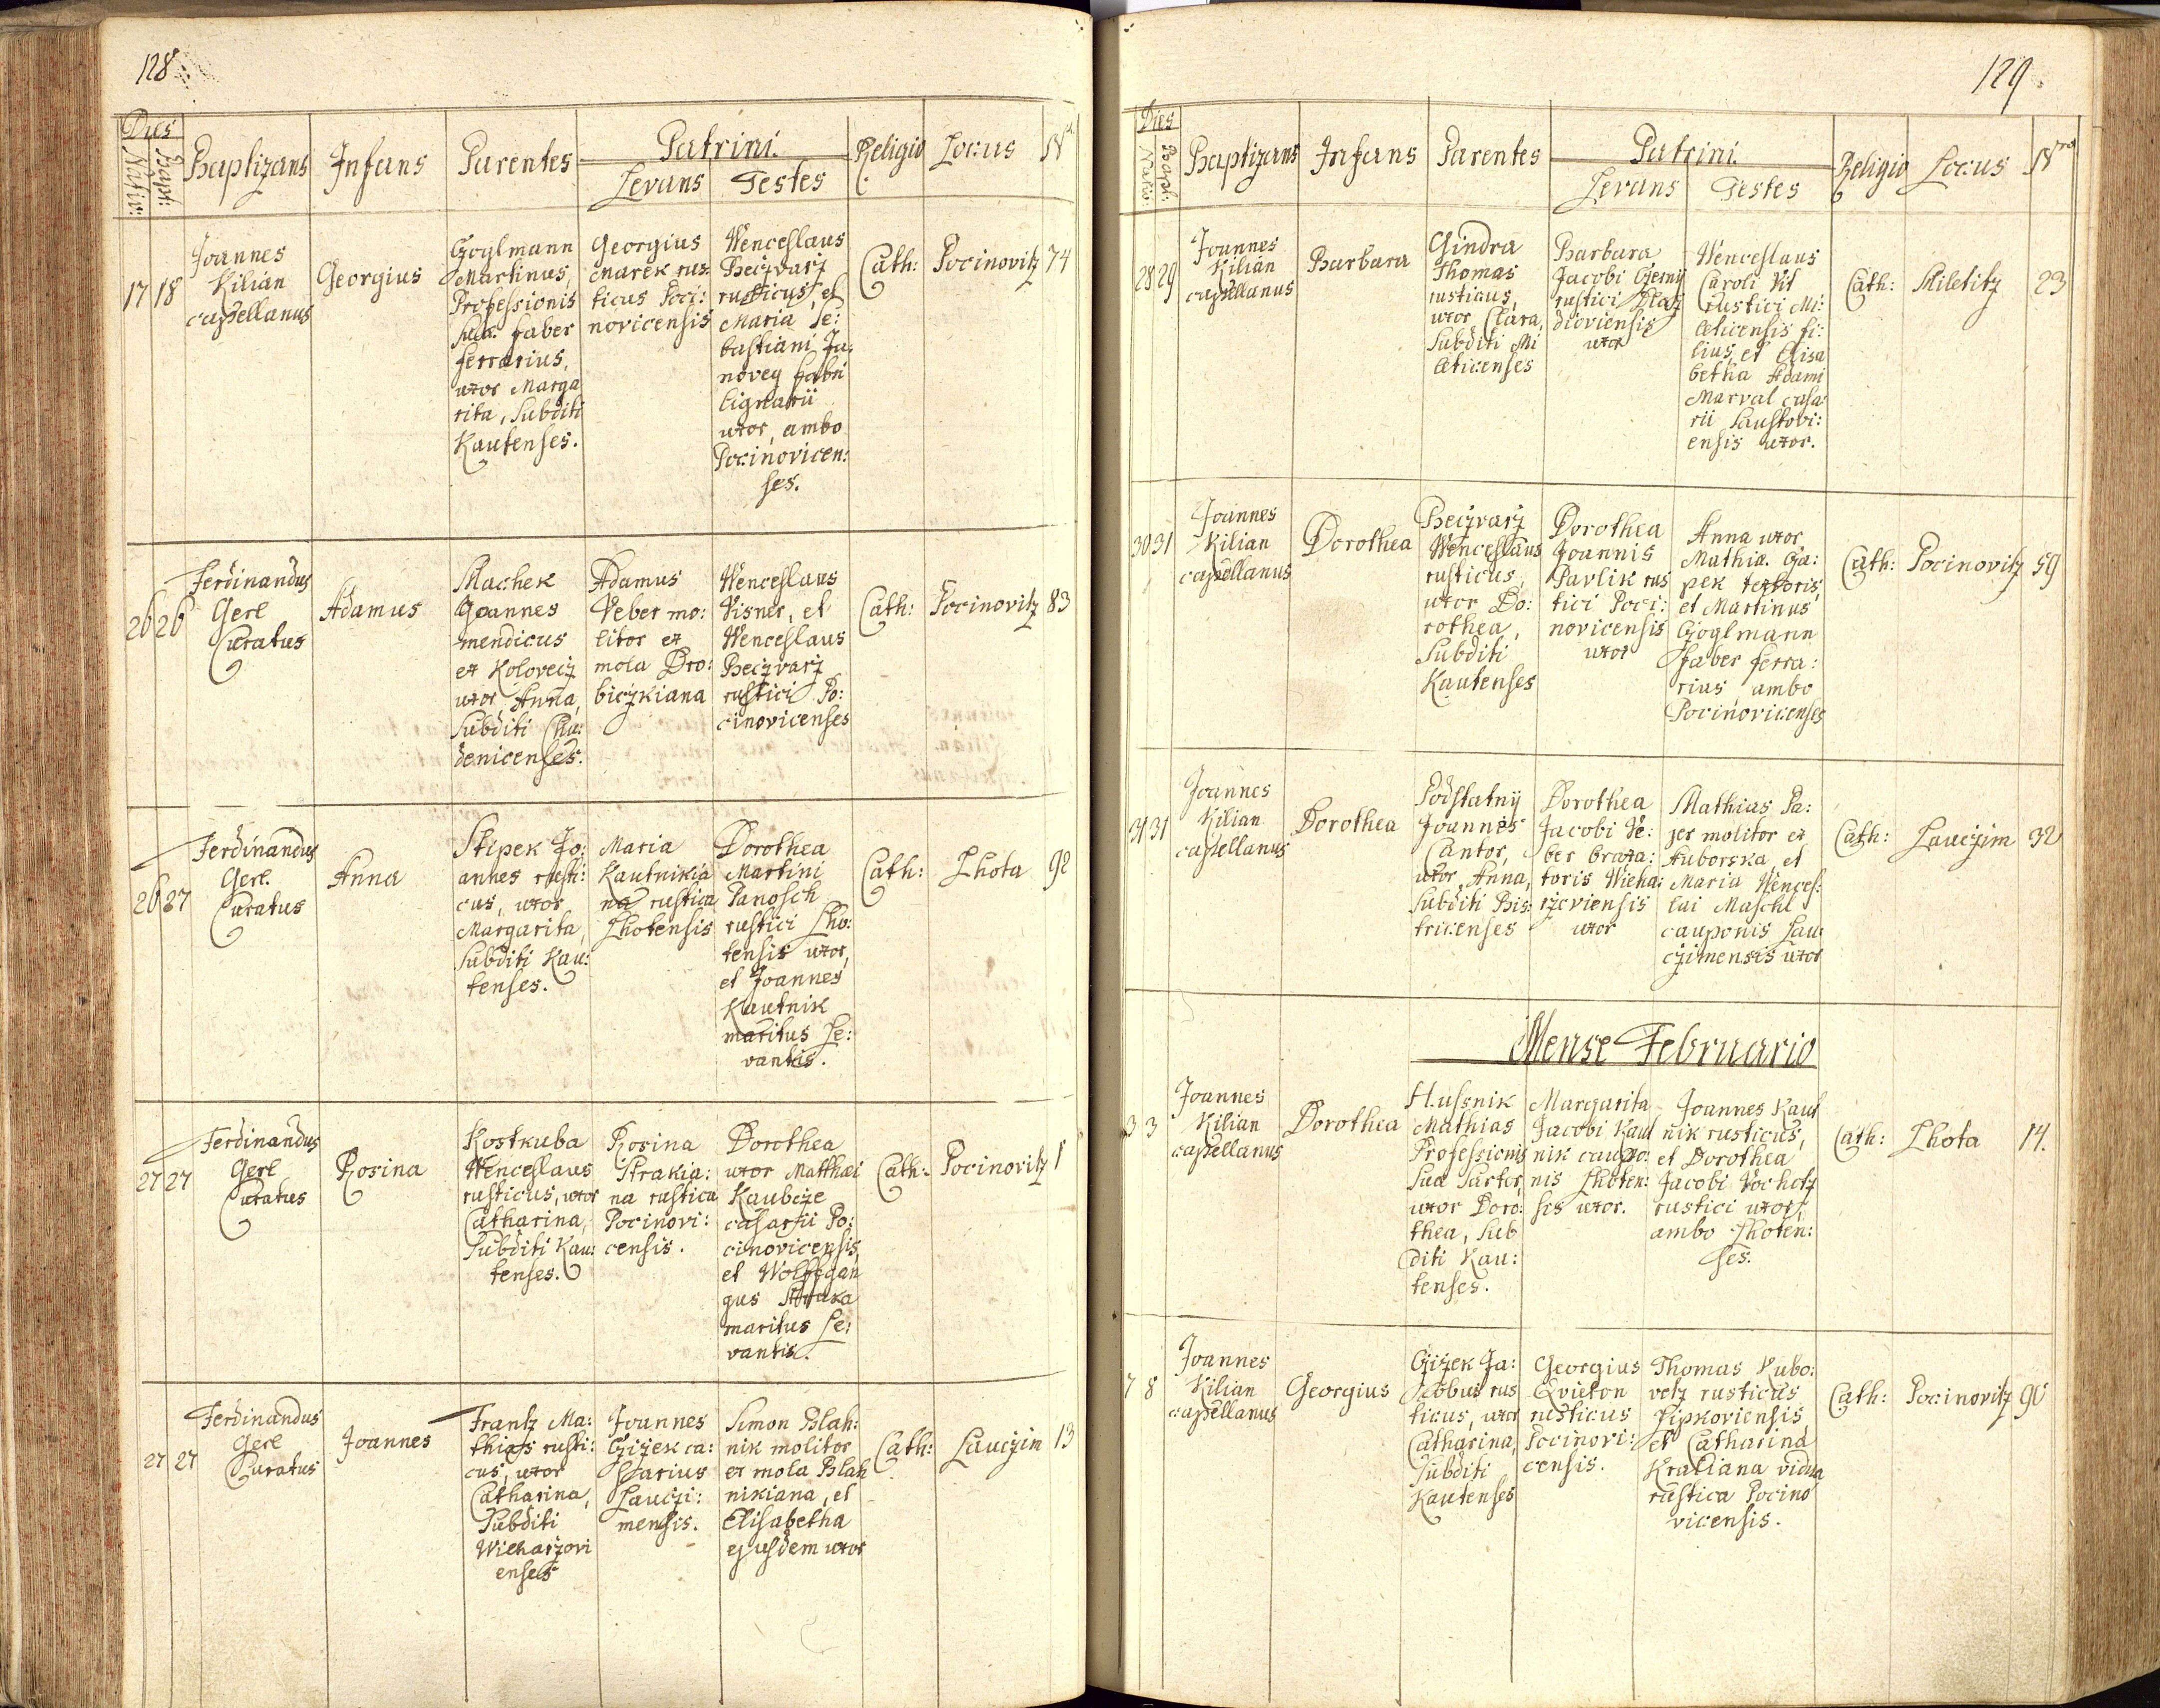 128
Dies
Nativ: Bapt: Baptizans Infans Parentes Patrini. Religio Locus Nr
Levans Testes
17 18
Joannes
Kilian
capellanus
Georgius
Goglmann
Martinus,
Professionis
Suae faber
ferrarius,
uxor Marga
rita, Subditi
Kautenses.
Georgius
Marek rus
ticus Poci:
novicensis
Wenceslaus
Beczvarz
rusticus, et
Maria Se:
bastiani Ja:
novey fabri
lignarii
uxor, ambo
Pocinovicen:
ses.
Cath:
Pocinovitz
74
26 26
Ferdinandus
Gerl
Curatus
Adamus
Machek
Joannes
mendicus
ex Kolovecz
uxor Anna,
Subditi Chu:
denicenses.
Adamus
Veber mo:
litor ex
mola Dro:
biczkiana
Wenceslaus
Visner, et
Wenceslaus
Beczvarz
rustici Po:
cinovicenses
Cath:
Pocinovitz
83
26 27
Ferdinandus
Gerl.
Curatus
Anna
Stipek Jo:
annes rusti:
cus, uxor
Margarita,
Subditi Kau:
tenses.
Maria
Kautnikia
na rustica
Lhotensis
Dorothea
Martini
Panosch
rustici Lho:
tensis uxor,
et Joannes
Kautnik
maritus Le:
vantis.
Cath:
Lhota
92
27 27
Ferdinandus
Gerl
Curatus
Rosina
Kostkuba
Wenceslaus
rusticus, uxor
Catharina,
Subditi Kau:
tenses.
Rosina
Strakia:
na rustica
Pocinovi:
censis.
Dorothea
uxor Matthaei
Kaubcze
casarii Po:
cinovicensis,
et Wolffgan
gus Straka
maritus Le:
vantis.
Cath:
Pocinovitz
1
27 27
Ferdinandus
Gerl
Curatus
Joannes
Frantz Ma:
thias rusti:
cus, uxor
Catharina,
Subditi
Wicharzovi
enses
Joannes
Czizek ca:
sarius
Lauczi:
mensis.
Simon Blah:
nik molitor
ex mola Blah
nikiana, et
Elisabetha
ejusdem uxor
Cath:
Lauczim
13
129
Dies
Nativ: Bapt: Baptizans Infans Parentes Patrini. Religio Locus Nro
Levans Testes
28 29
Joannes
Kilian
capellanus
Barbara
Gindra
Thomas
rusticus,
uxor Clara,
Subditi Mi
leticenses
Barbara
Jacobi Czerny
rustici
dioviensis
uxor
Wenceslaus
Caroli Vit
rustici Mi:
leticensis fi:
lius, et Elisa
betha Adami
Marval casa:
rii Laustovi:
ensis uxor.
Cath:
Miletitz
23
30 31
Joannes
Kilian
capellanus
Dorothea
Beczvarz
Wenceslaus
rusticus,
uxor Do:
rothea,
Subditi
Kautenses
Dorothea
Joannis
Pavlik rus
tici Poci:
novicensis
uxor
Anna uxor
Mathiae Ga:
pek textoris,
et Martinus
Goglmann
faber ferra:
rius, ambo
Pocinovicenses
Cath:
Pocinovitz
59
31 31
Joannes
Kilian
capellanus
Dorothea
Podstatny
Joannes
Cantor,
uxor Anna,
Subditi Bis:
tricenses
Dorothea
Jacobi Ve:
ber braxa:
toris Wicha:
rzoviensis
uxor
Mathias Pa:
jer molitor ex
Huborska, et
Maria Wences:
lai Maschl
cauponis Lau:
czimensis uxor
Cath:
Lauczim
32
Mense Februario
3 3
Joannes
Kilian
capellanus
Dorothea
Hussnik
Mathias
Professionis
Sua Sartor,
uxor Doro:
thea, Sub
diti Kau:
tenses.
Margarita
Jacobi Kaut
nik caupo:
nis Lhoten:
sis uxor.
Joannes Kaut
nik rusticus,
et Dorothea
Jacobi Vochotz
rustici uxor,
ambo Lhoten:
ses.
Cath:
Lhota
14.
7 8
Joannes
Kilian
capellanus
Georgius
Czizek Ja:
cobus rus
ticus, uxor
Catharina,
Subditi
Kautenses
Georgius
Qvieton
rusticus
Pocinovi:
censis.
Thomas Kubo:
vetz rusticus
Lipkoviensis,
et Catharina
Kraliana vidua
rustica Pocino
vicensis.
Cath:
Pocinovitz
90